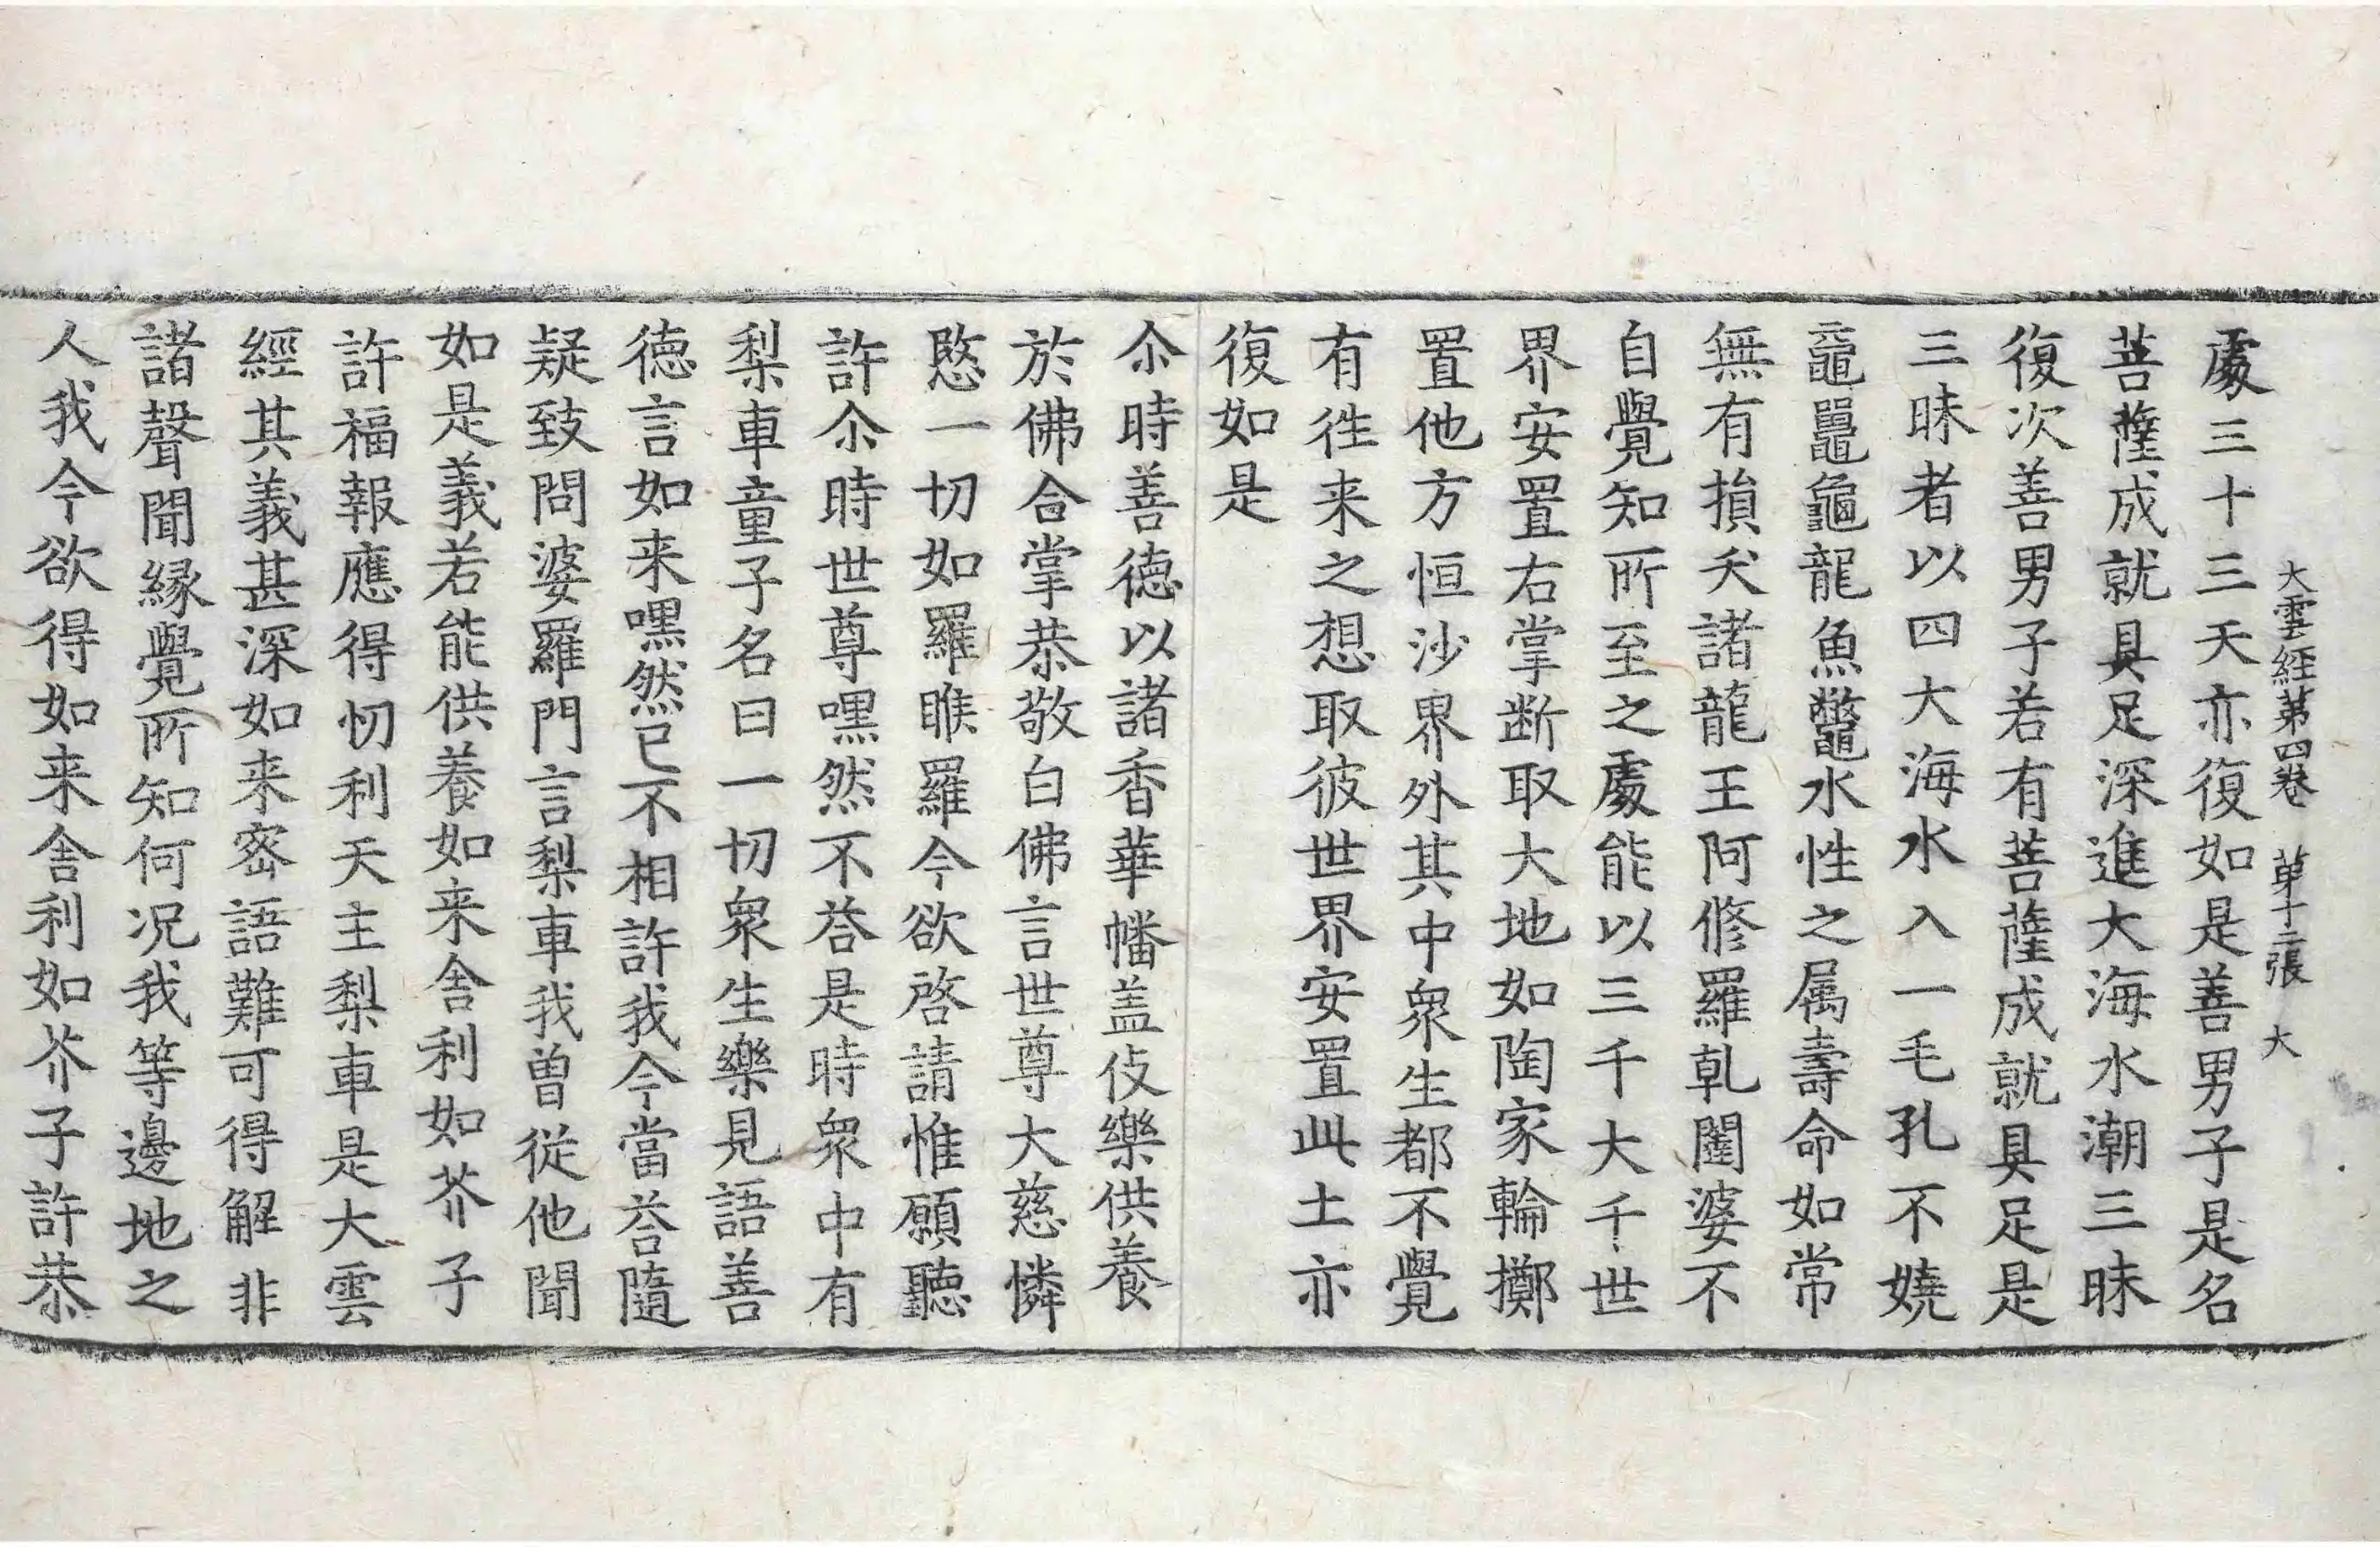 大雲經第四卷 苐十二張 大
處三十三天亦復如是善男子是名
菩薩成就具足深進大海水潮三昧
復次善男子若有菩薩成就具足是
三昧者以四大海水入一毛孔不嬈
黿鼉龜龍魚鼈水性之属壽命如常
無有損夭諸龍王阿脩羅乹闥婆不
自覺知所至之處能以三千大千世
界安置右掌断取大地如陶家輪擲
置他方恒沙界外其中衆生都不覺
有徃来之想取彼世界安置此土亦
復如是
尒時善德以諸香華幡盖伎樂供養
於佛合掌恭敬白佛言世尊大慈憐
愍一切如羅睺羅今欲啓請惟願聽
許尒時世尊嘿然不荅是時衆中有
梨車童子名曰一切衆生樂見語善
德言如来嘿然已不相許我今當荅隨
疑致問婆羅門言梨車我曽從他聞
如是義若能供養如来舎利如芥子
許福報應得忉利天主梨車是大雲
經其義甚深如来宻語難可得解非
諸聲聞縁覺所知何况我等邊地之
人我今欲得如来舎利如芥子許恭